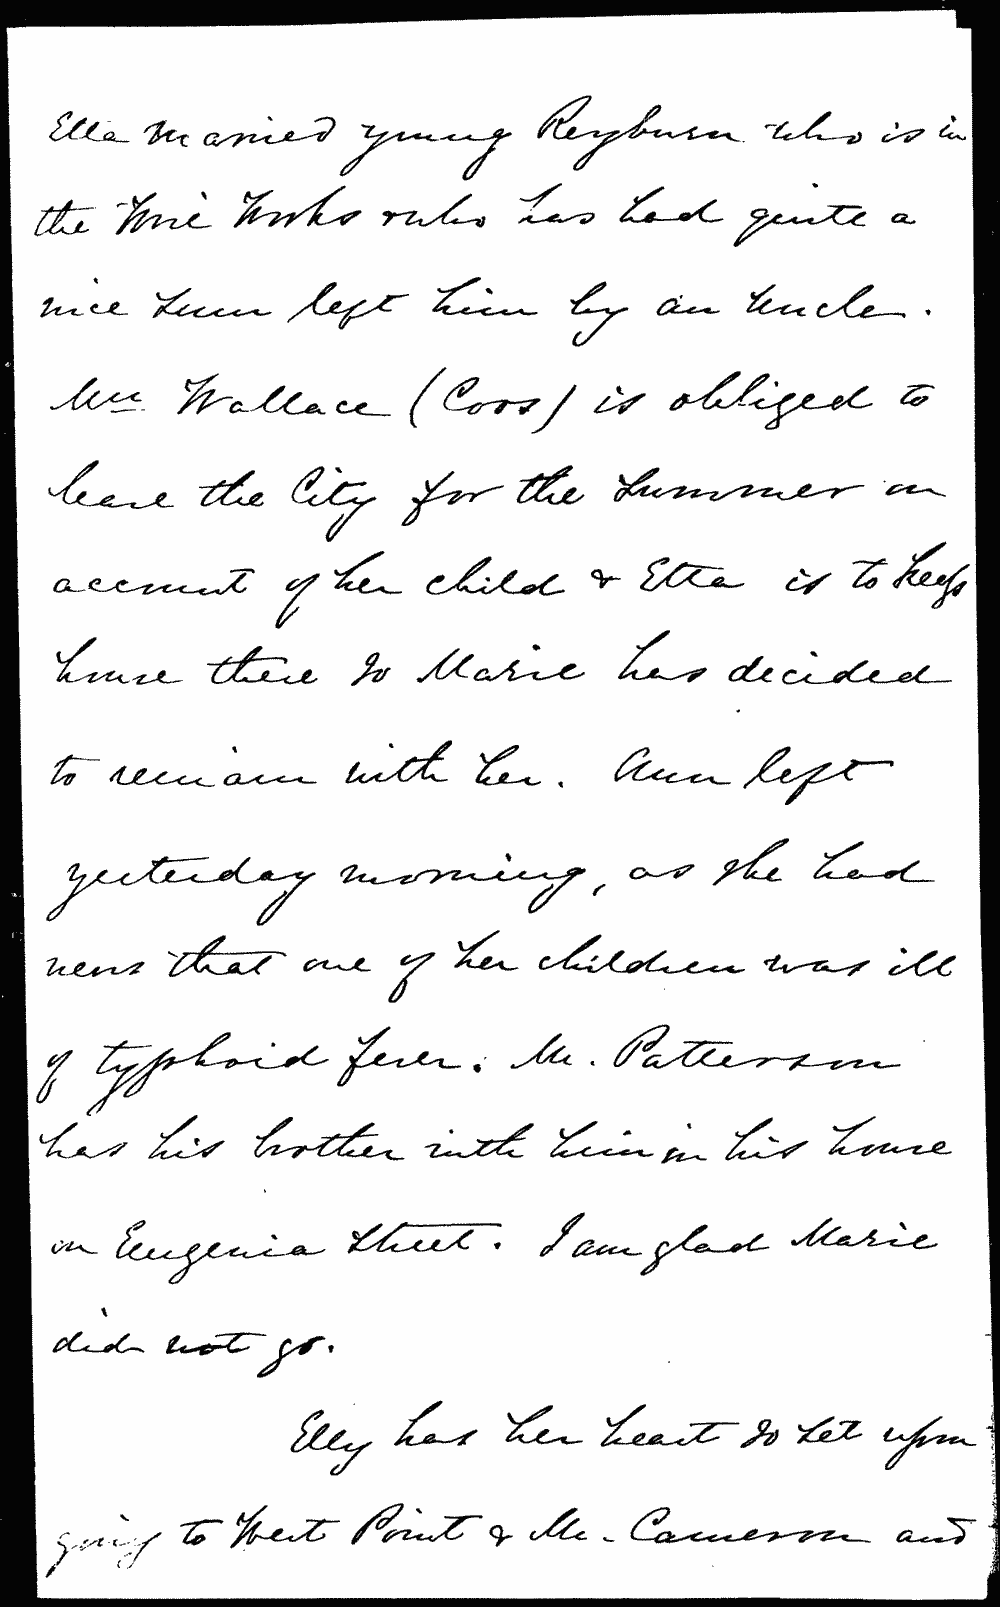 Ella married young Reyburn who is in
the Wire Works who has had quite a
nice sum left him by an Uncle.
Mrs. Wallace (Coos) is obliged to
leave the City for the Summer on
account of her child & Etta is to keep
house there so Marie has decided
to remain with her. Ann left
yesterday morning, as she had
news that one of her children was ill
of typhoid fever. Mr. Patterson
has his brother with him in his house
on Eugenia Street. I am glad Marie
did not go.
Elly has her heart so set upon
going to West Point & Mr. Cameron and